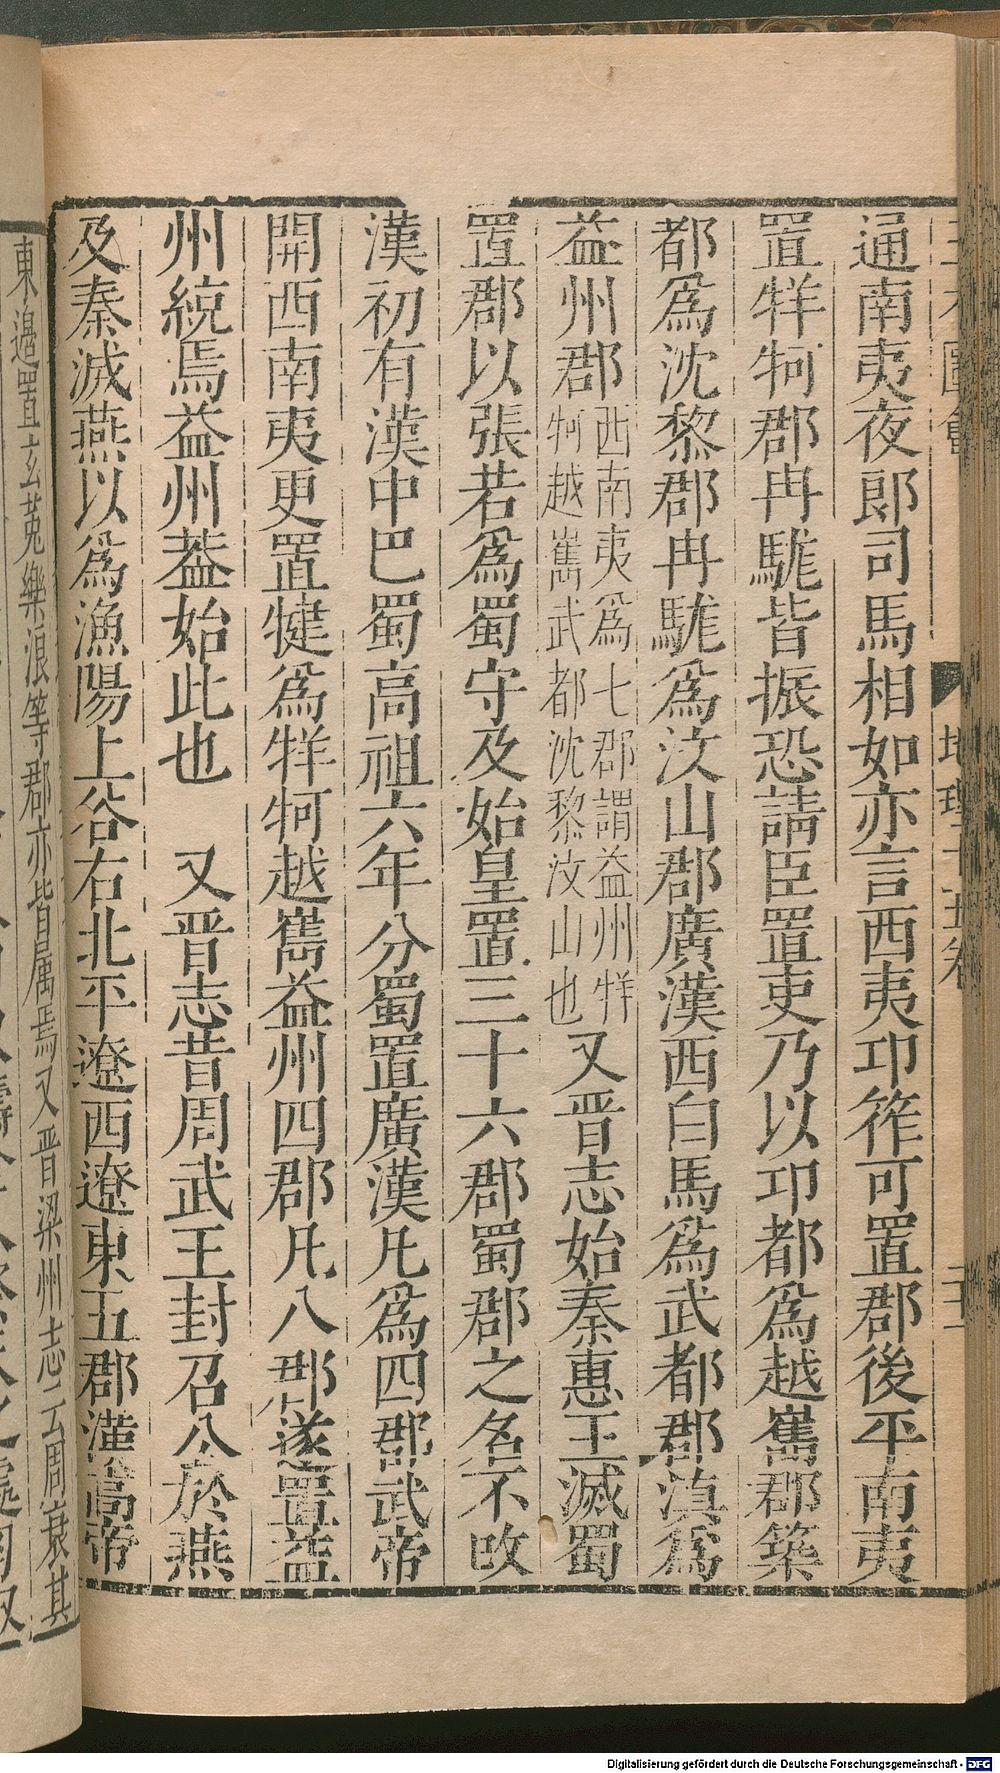 通南夷夜郎司馬相如亦言西夷邛筰可置郡後平南夷
置牂牁郡冉駹皆振恐請臣置吏乃以邛都爲越嶲郡築
都爲沈黎郡冉駹爲汶山郡廣漢西白馬爲武都郡滇爲
益州郡西南夷爲七郡謂益州牂牁越嶲武都沈黎汶山也又晋志始秦惠王滅蜀
置郡以張若爲蜀守及始皇置三十六郡蜀郡之名不改
漢初有漢中巴蜀高祖六年分蜀置廣漢凡爲四郡武帝
開西南夷更置犍爲牂牁越嶲益州四郡凡八郡遂置益
州統焉益州葢始此也 又晋志昔周武王封召公於燕
及秦滅燕以爲漁陽上谷右北平遼西遼東五郡漢高帝
東邊置玄菟樂浪等郡亦皆属焉又晋梁州志云周衰其
Digitalisierung gefördert durch die Deutsche Forschungsgemeinschaft - DFG